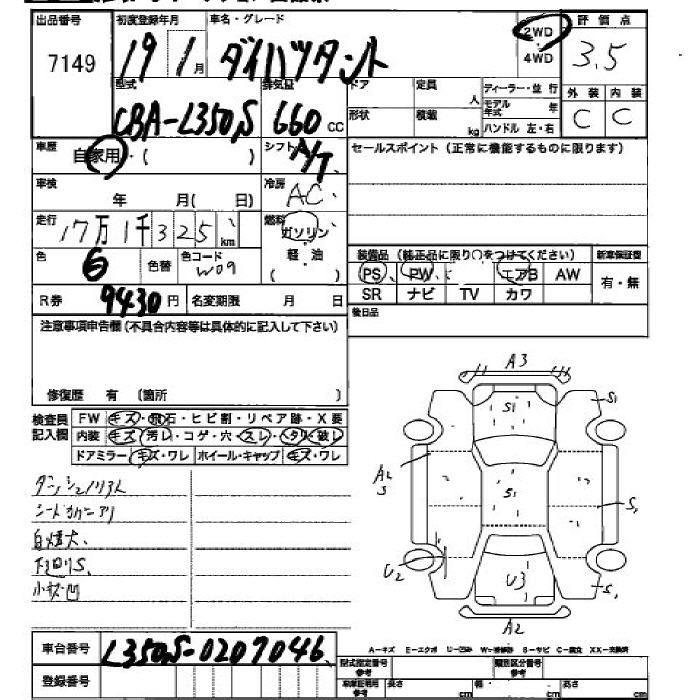 出品番号 初度登録年月 車名・グレード 2WD 評価点
7149 19年1月 ダイハツタント 4WD 3.5
型式 排気量 ドア 定員 人 ディーラー・並行 外装 内装
CBA-L350S 660cc 形状 積載 kg モデル年式 年 C C
ハンドル 左・右
車歴 自家用・( ) シフト A/T セールスポイント(正常に機能するものに限ります)
車検 年 月( 日) 冷房 AC
走行 17万1千325km 燃料 ガソリン・軽・油
色 6 色替 色コード W09 ( )
装備品(純正品に限り○をつけてください) 新車保証型
PS PW エアB AW 有・無
SR ナビ TV カワ
R券 9430円 名変期限 月 日
後日品
注意事項申告欄(不具合内容等は具体的に記入して下さい)
修復歴 有 (箇所 )
検査員記入欄 FW キズ・飛石・ヒビ割・リペア跡・X要
内装 キズ・汚レ・コゲ・穴・スレ・ヘタリ・破レ
ドアミラー キズ・ワレ ホイール・キャップ キズ・ワレ
A3
S1 S1
A2 S S1 S1
U2 U3 S1
A2
白煙大、
下廻りS、
小キズ凹
車台番号 L350S-0207046
A-キズ E-エクボ U-凹み W-補修跡 S-サビ C-腐食 XX-交換済
型式指定番号 参考 類別区分番号 参考
登録番号 車庫証明用 参考 長さ cm 幅 cm 高さ cm